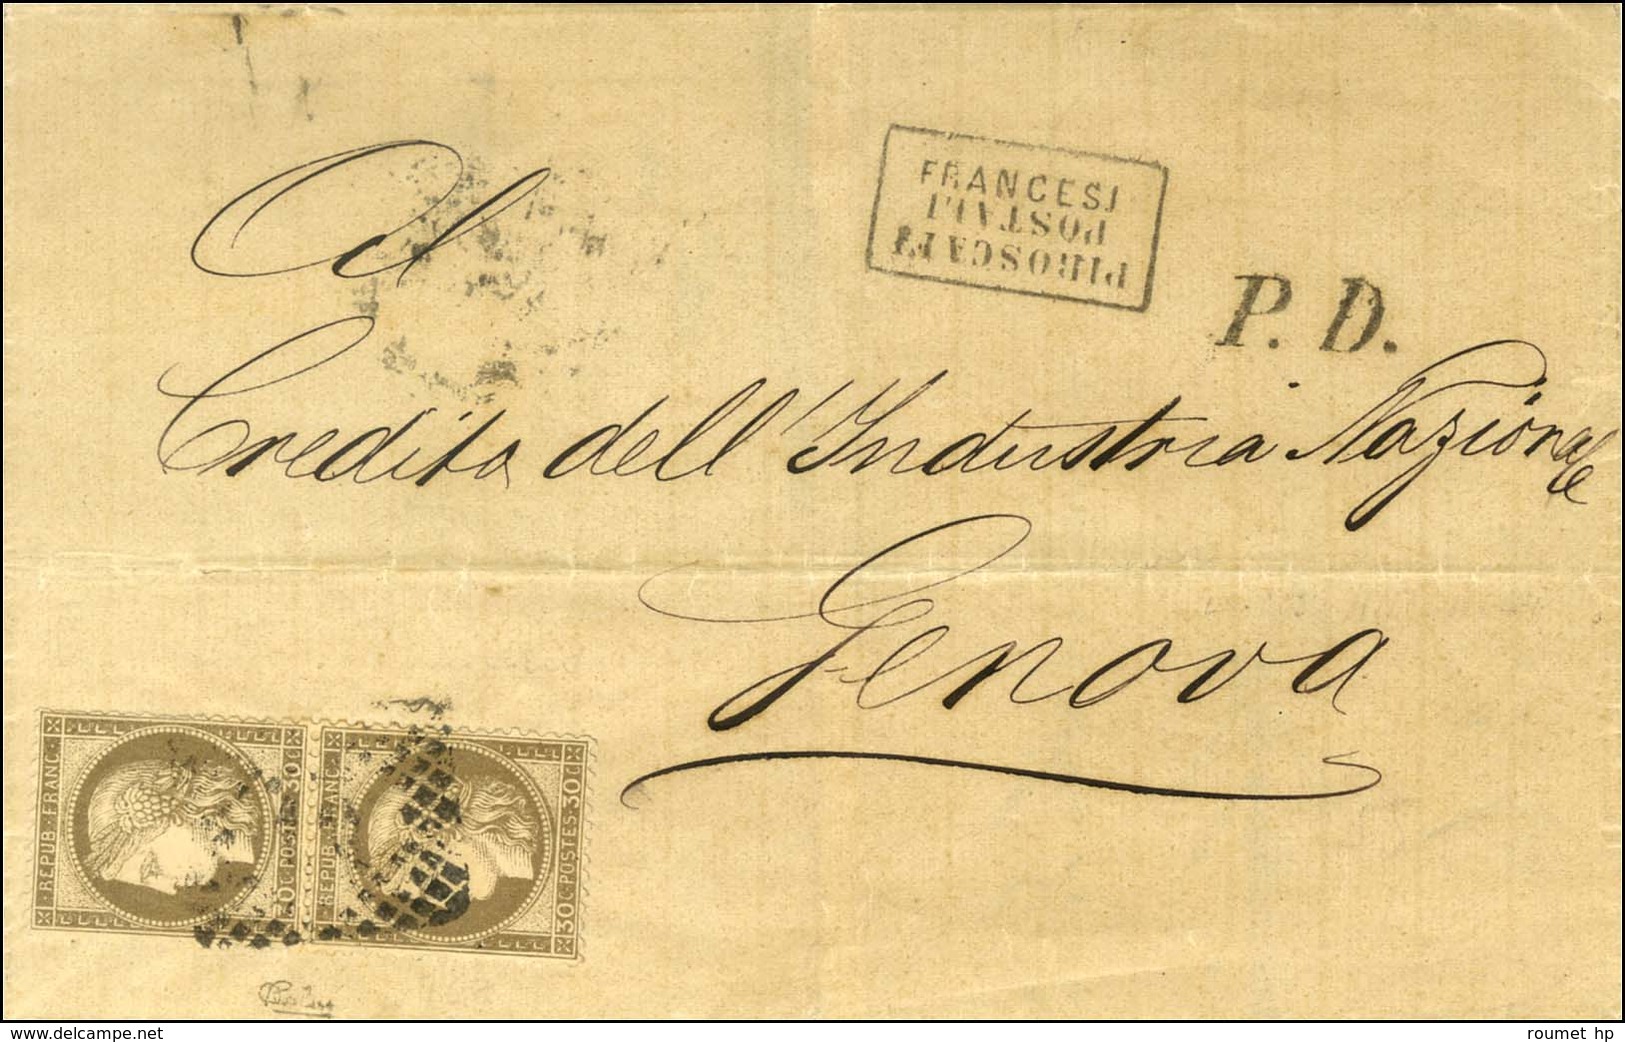 Al
FRANCESI
POSTALI
PIROSCAFI
P. D.
Credito dell'Industria Nazionale
Genova
REPUB·FRANC·
30C·POSTES·30C
REPUB·FRANC·
30C·POSTES·30C
www.delcampe.net
roumet hp